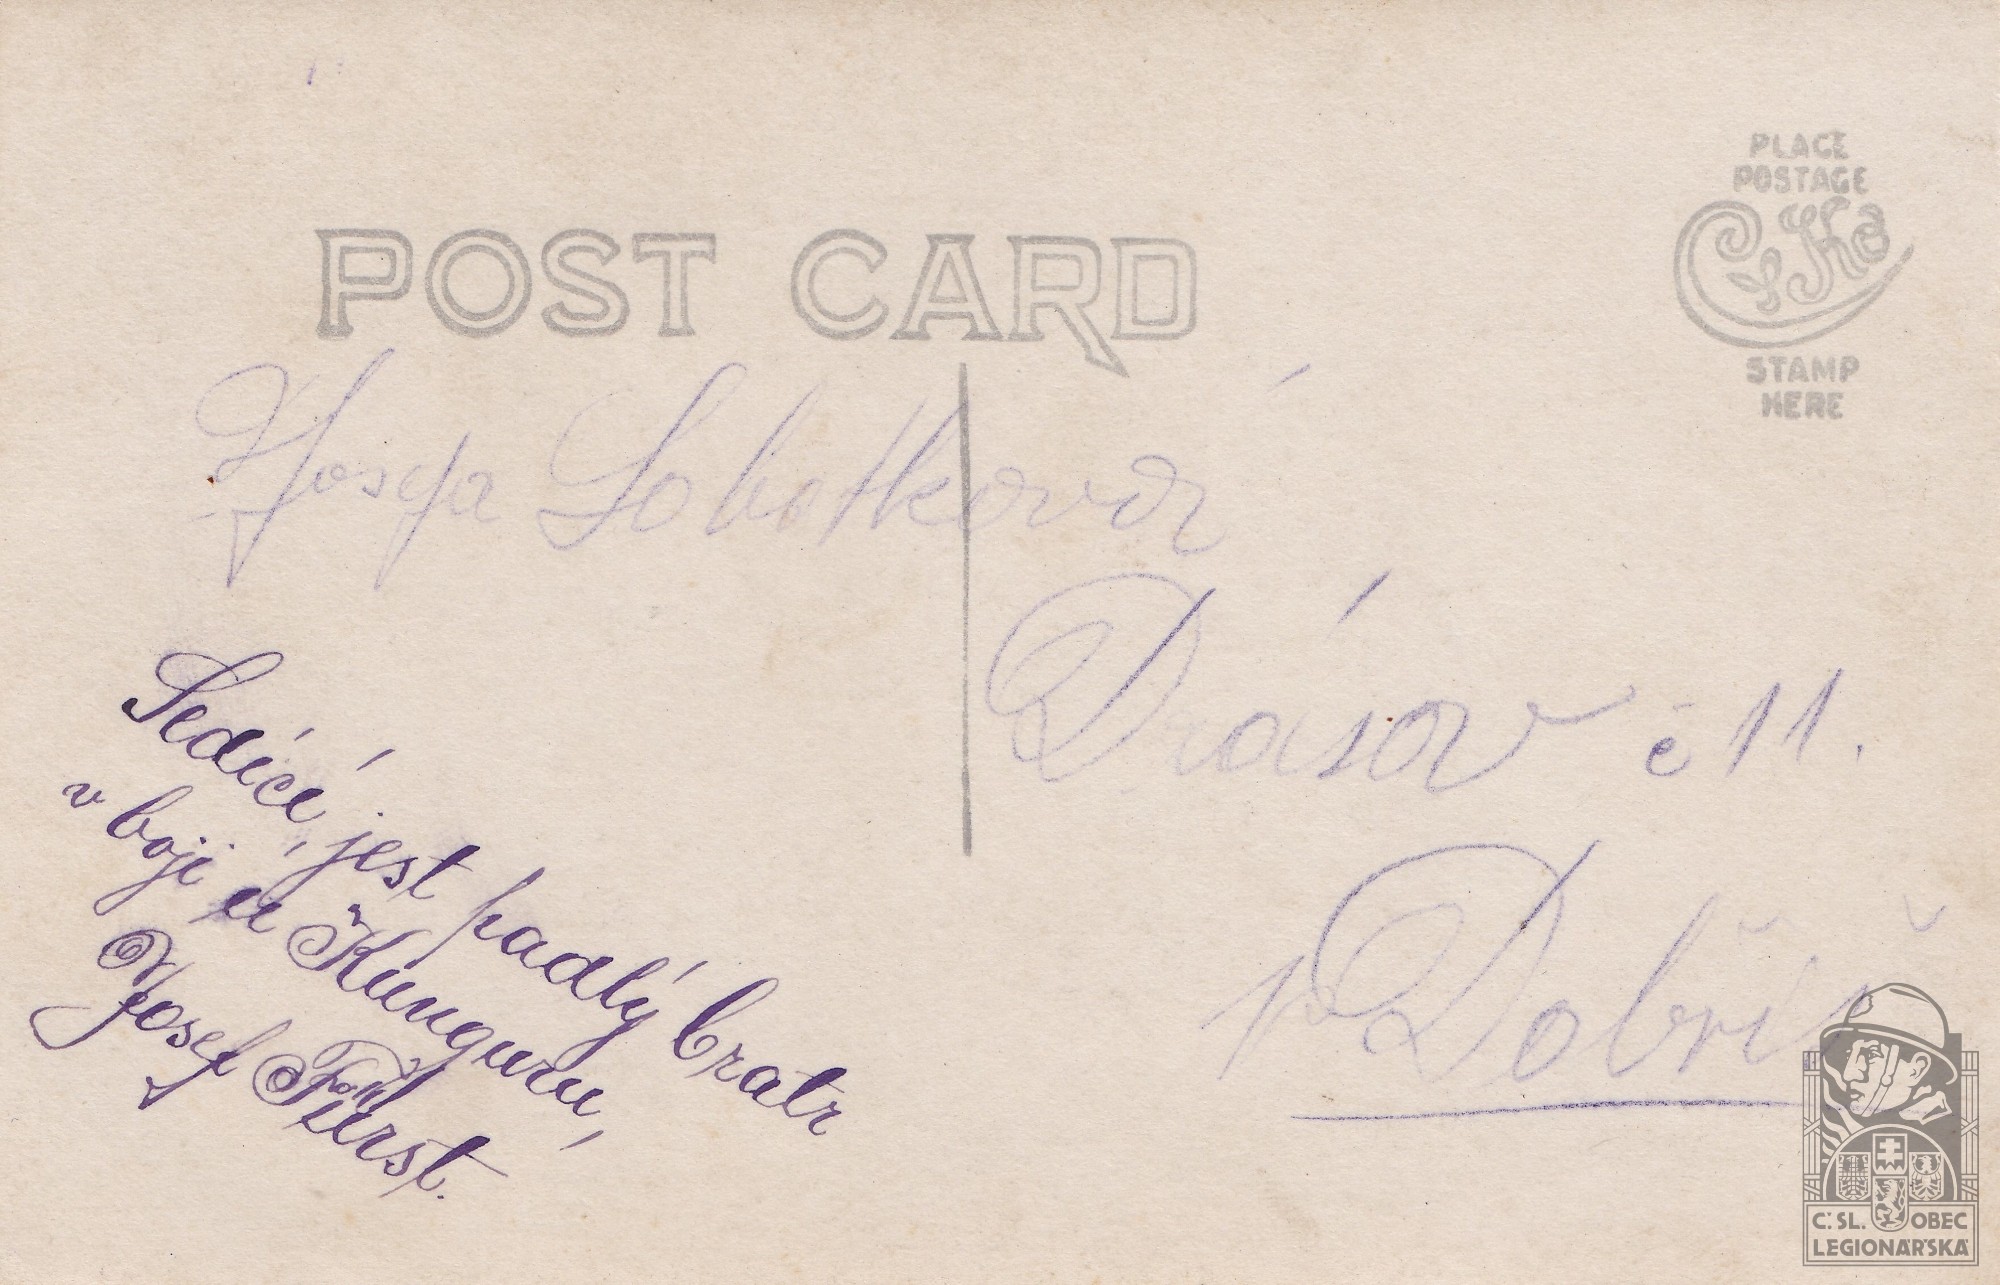 PLACE
POSTAGE
STAMP
HERE
POST CARD
Josefa Sobotková
Drásov č 11.
p Dobříš
Sedící, jest padlý bratr
v boji u Kunguru,
Josef Fürst.
Č:SL. OBEC
LEGIONÁŘSKÁ